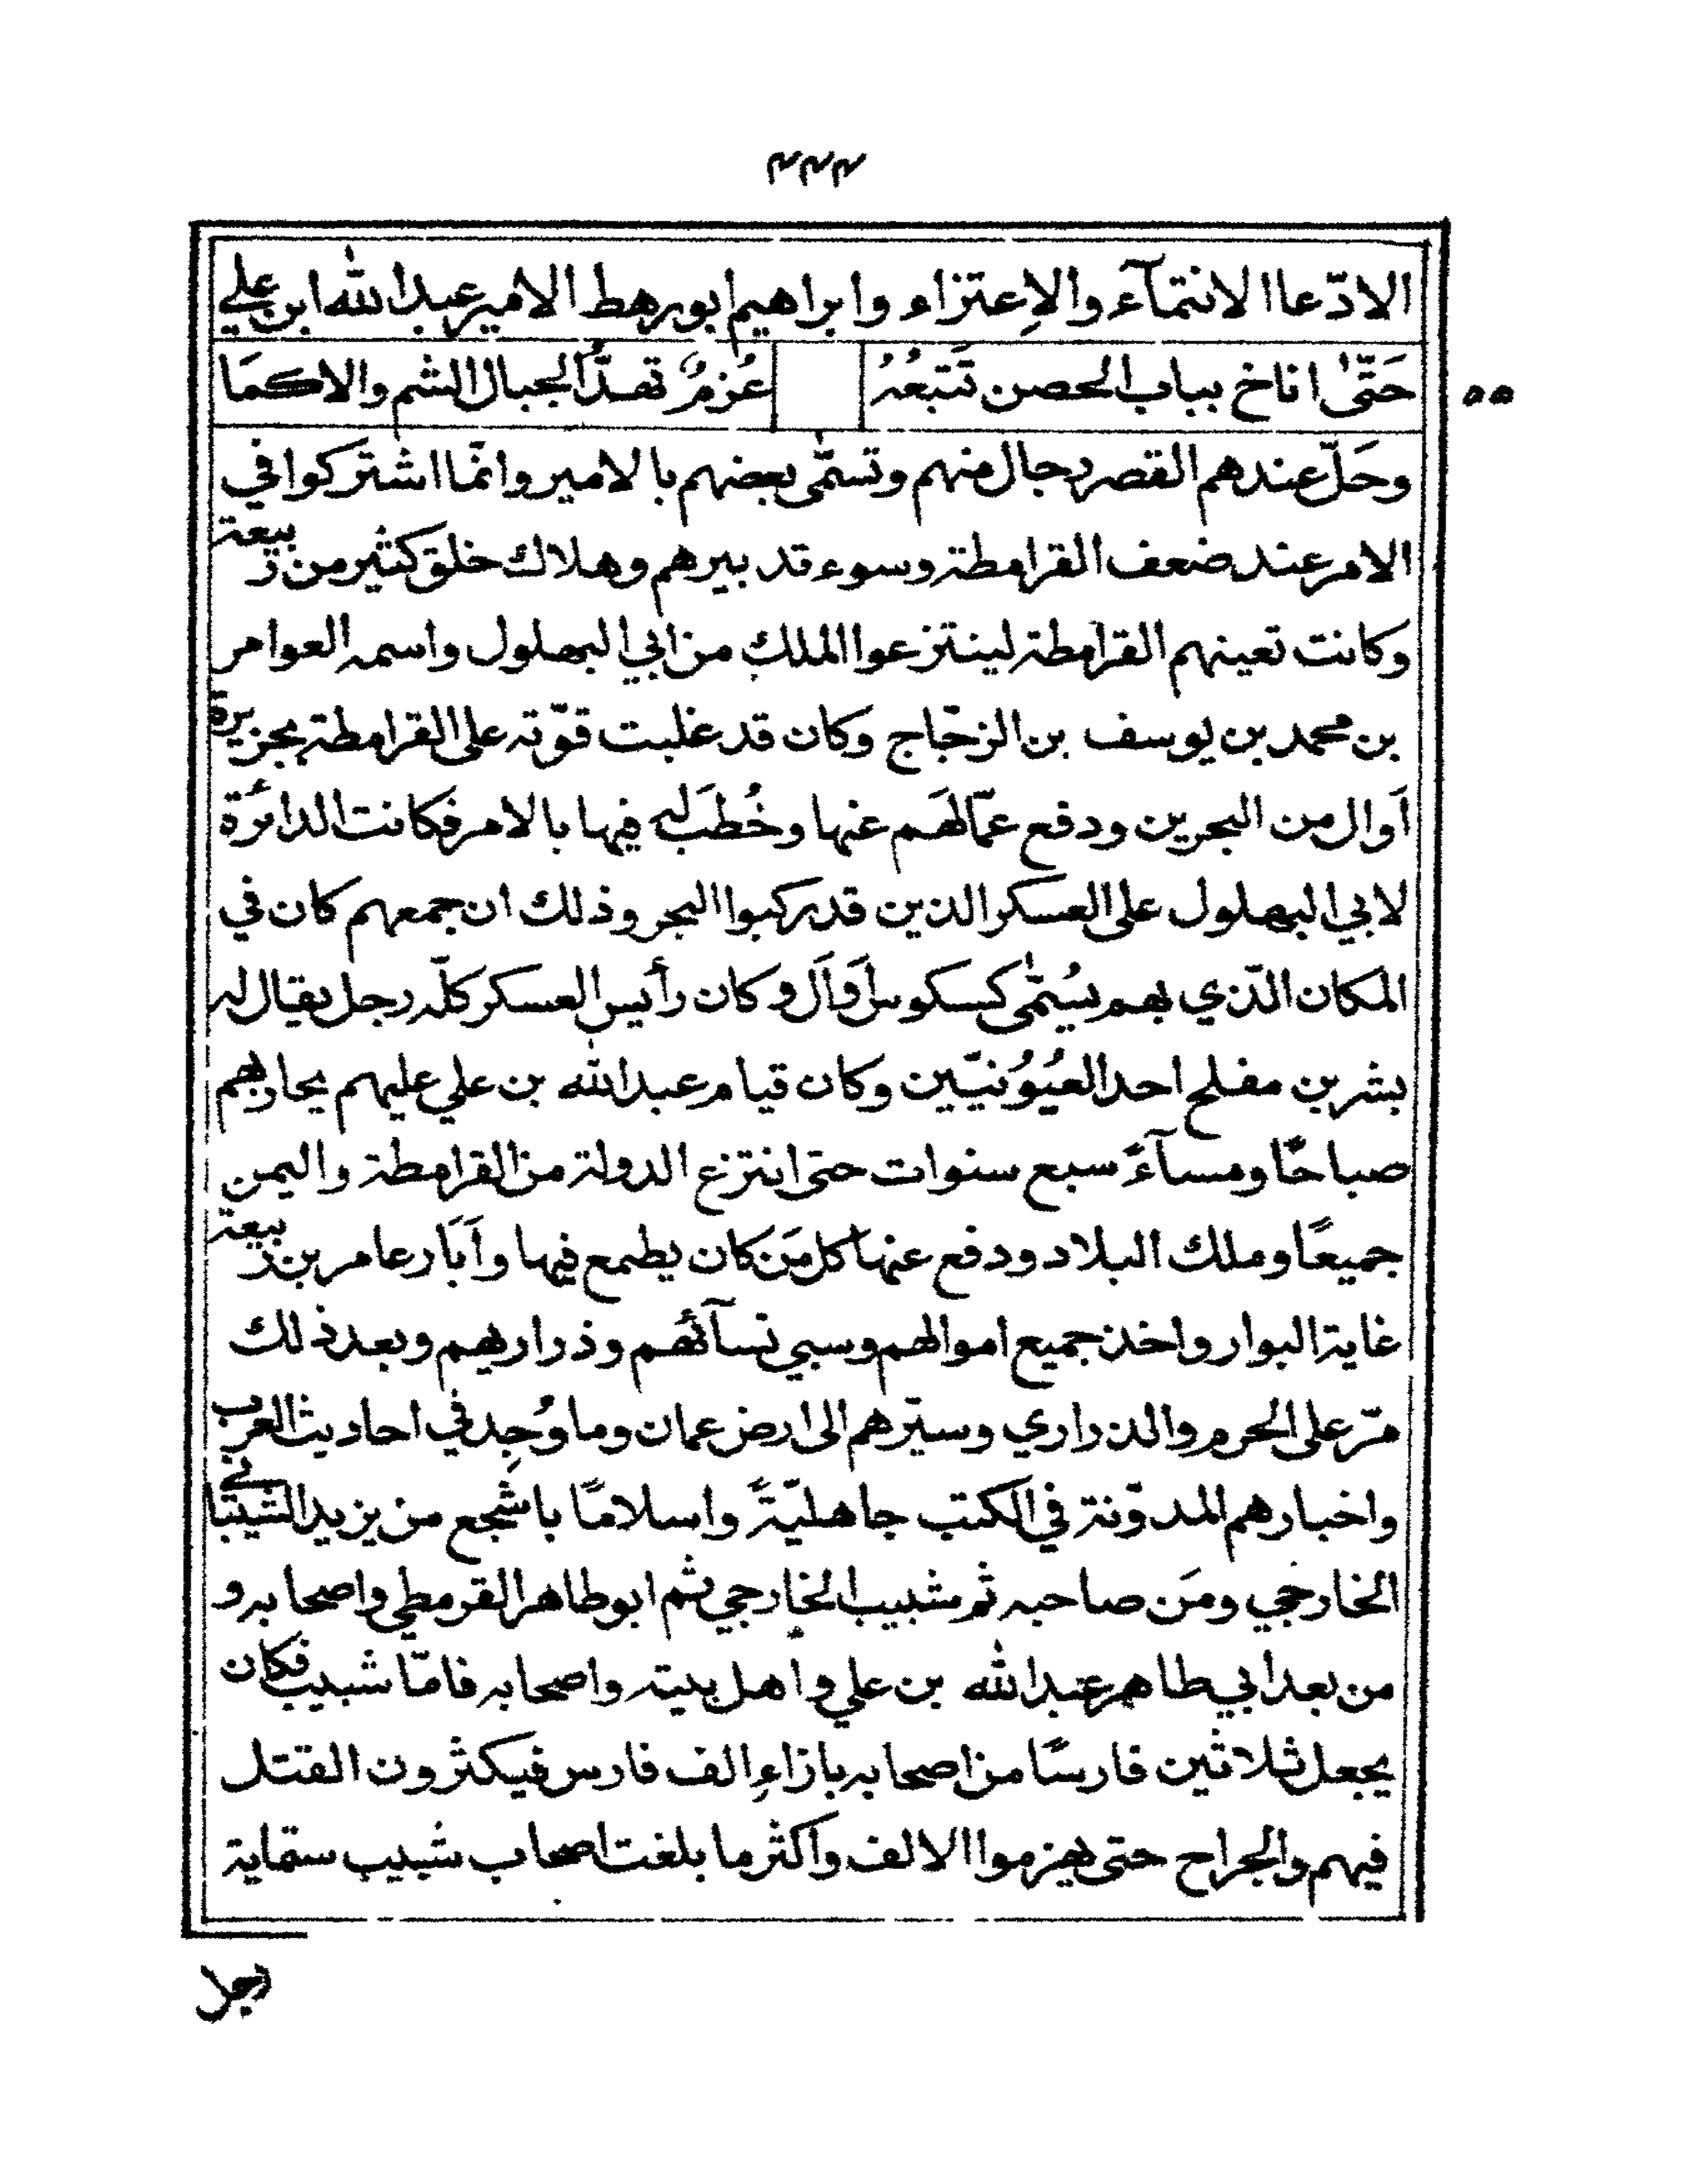 ٤٤٤
الادّعا الانتمآء والاِعتزاء وابراهيم ابو رهط الامير عبدالله ابن علي
حَتّى اناخ بباب الحصن تَتبعُهُ عُزمٌ تهدُّ الجبال الشم والاكمَا
٥٥
وحَلّ عندهم القصر رجال منهم وتسمّى بعضهم بالامير وانّما اشتركوا في
الامر عند ضعف القرامطة وسوء تدبيرهم وهلاك خلق كثير من ربيعة
وكانت تعينهم القرامطة لينتزعوا الملك من ابي البهلول واسمه العوام
بن محمد بن يوسف بن الزجّاج وكان قد غلبت قوّته على القرامطة بجزيرة
اَوال من البحرين ودفع عمّالهَم عنها وخُطبَ له فيها بالامر فكانت الدائرة
لابي البهلول على العسكر الذين قد ركبوا البحر وذلك ان جمعهم كان في
المكان الّذي بهم يُسمّى كسكوس اَوَال وكان رأيس العسكر كلّه رجل يقال له
بشر بن مفلح احد العُيُونيّين وكان قيام عبدالله بن علي عليهم يحاربهم
صباحًا ومسآءً سبع سنوات حتى انتزع الدولة من القرامطة واليمن
جميعًا وملك البلاد ودفع عنها كل مَن كان يطمع فيها واَبَار عامر بن ربيعة
غاية البوار واخذ جميع اموالهم وسبي نسآئهم وذراريهم وبعد ذلك
مّر على الحرم والذراري وسيّرهم الى ارض عمان وما وُجِد في احاديث العرب
واخبارهم المدوّنة في الكتب جاهليّةً واسلامًا باشجع من يزيد الشيباني
الخارجي ومَن صاحبه ثم شبيب الخارجي ثم ابو طاهر القرمطي واصحابه و
من بعد ابي طاهر عبدالله بن علي واهل بيته واصحابه فامّا شبيب فكان
يجعل ثلاثين فارسًا من اصحابه بازاءِ الف فارس فيكثرون القتل
فيهم والجراح حتى يهزموا الالف واكثر ما بلغت اصحاب شبيب ستماية
رجل